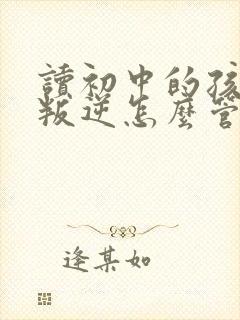 讀初中的孩
叛逆怎麼管
逢某如